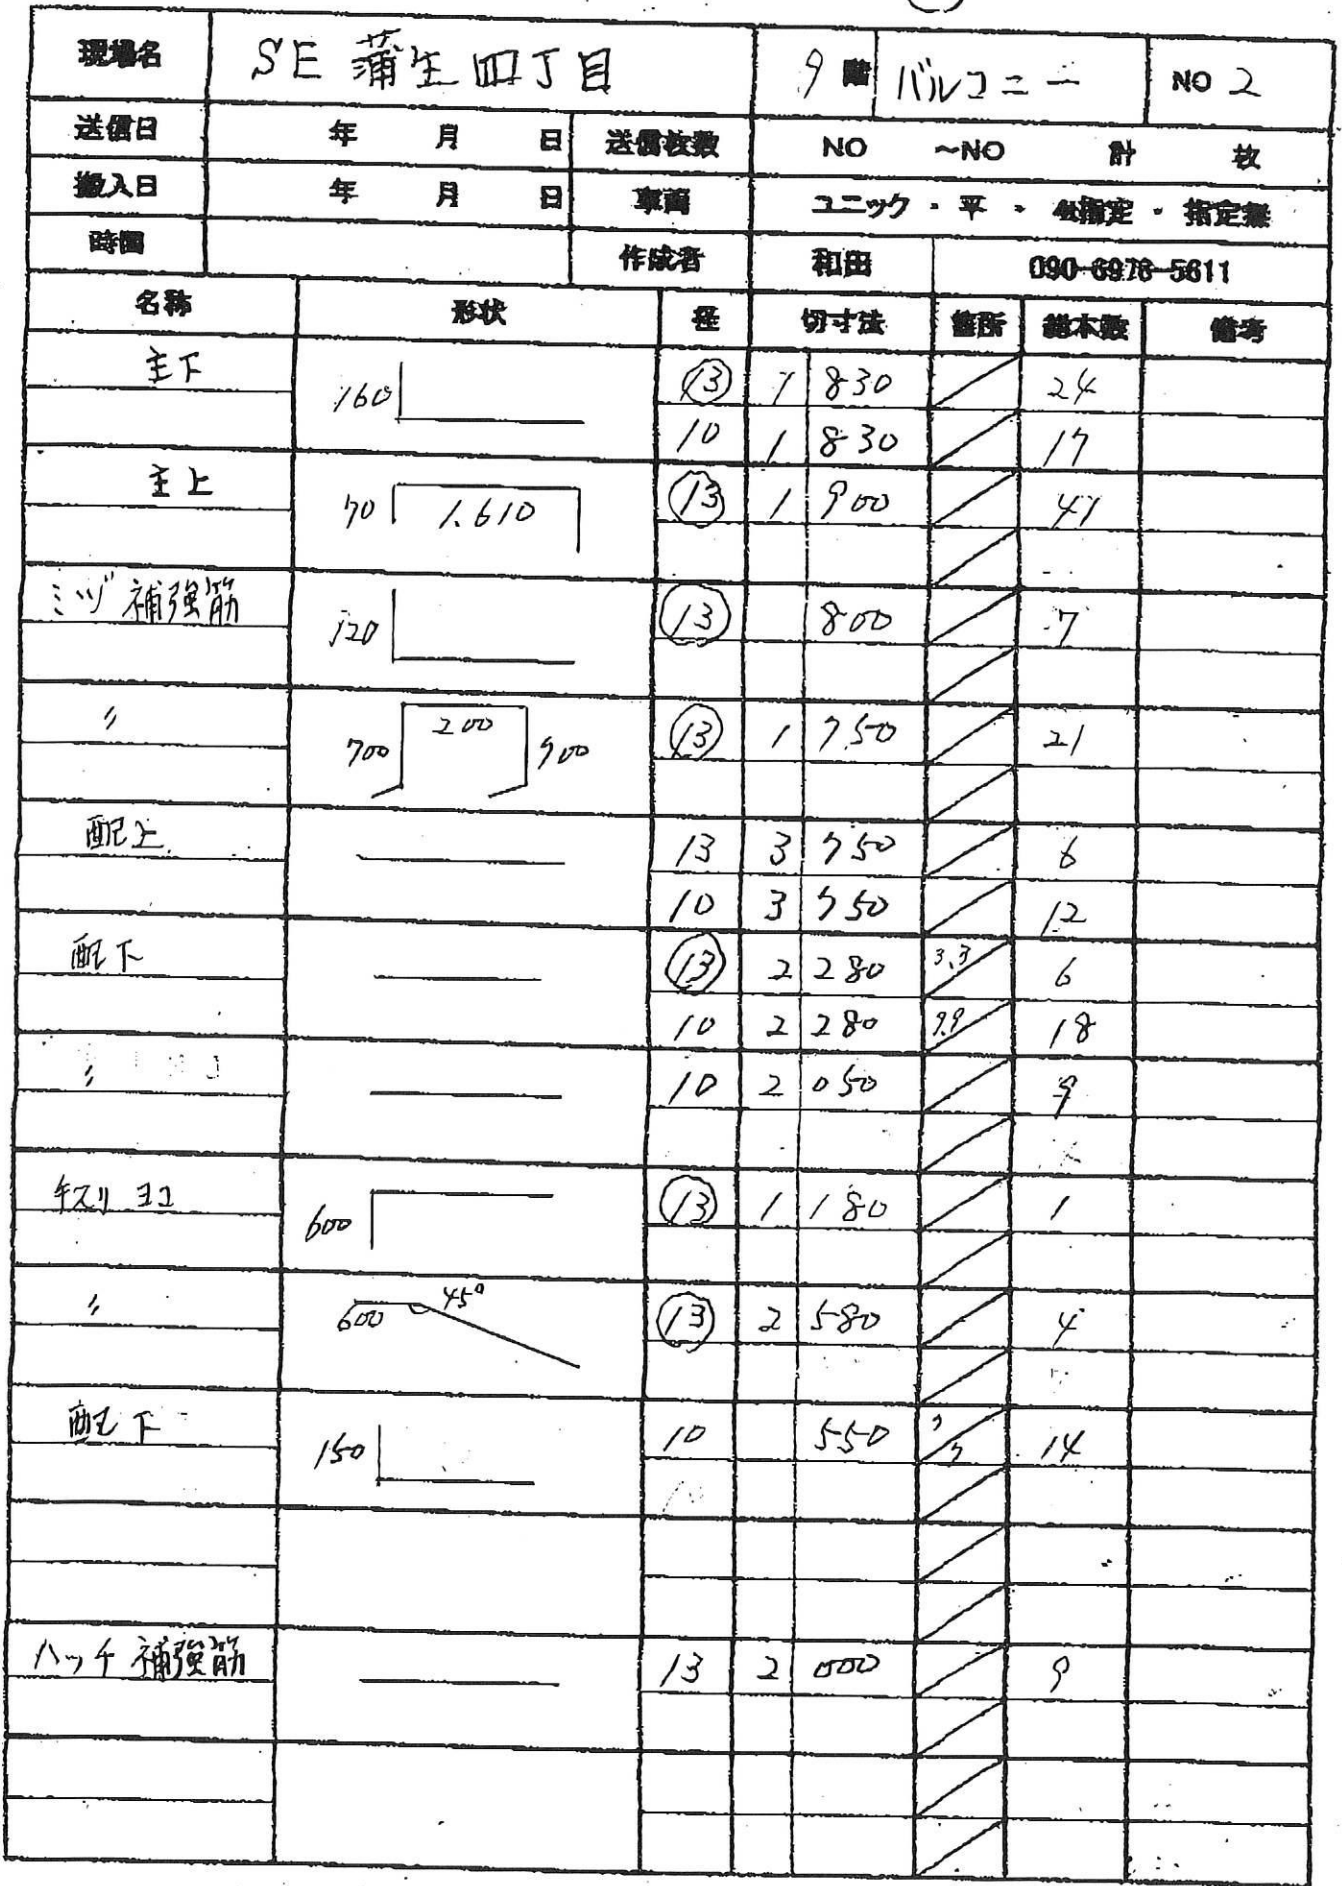 現場名 SE 蒲生四丁目 9 階 バルコニー NO 2
送信日 年 月 日 送信枚数 NO ~NO 計 枚
搬入日 年 月 日 車両 ユニック ・ 平 ・ 4t指定 ・ 指定無
時間 作成者 和田 090-6976-5611
名称 形状 径 切寸法 箇所 総本数 備考
主下 160 ⑬ 1 830 24
10 1 830 17
主上 70 1.610 ⑬ 1 900 41
ミゾ補強筋 120 ⑬ 800 7
〃 700 200 700 ⑬ 1 750 21
配上 13 3 750 6
10 3 750 12
配下 ⑬ 2 280 3.3 6
10 2 280 9.9 18
〃 10 2 050 9
手スリ ヨコ 600 ⑬ 1 180 1
〃 600 45° ⑬ 2 580 4
配下 150 10 550 7 7 14
ハッチ補強筋 13 2 000 9